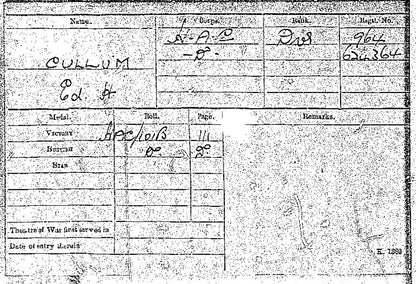 Name. Corps. Rank. Regtl. No.
CULLUM A.P.C Dvr 964
-"- 654364
Ed. A
Medal. Roll. Page. Remarks.
VICTORY APC/101B 111
BRITISH do do
STAR
Theatre of War first served in
Date of entry therein
K. 1380